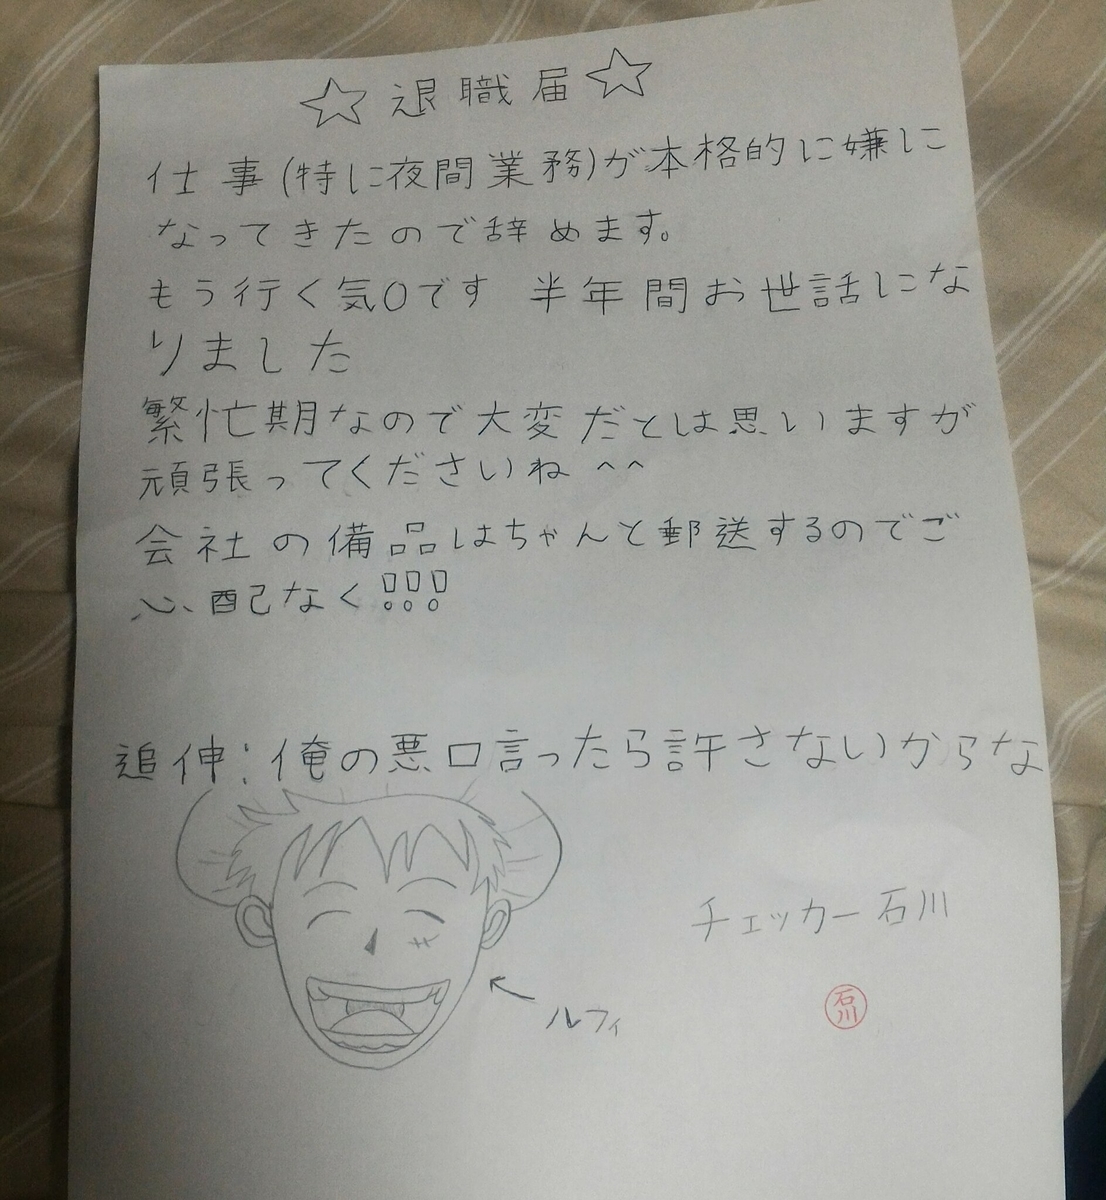 ☆退職届☆
仕事(特に夜間業務)が本格的に嫌に
なってきたので辞めます。
もう行く気0です 半年間お世話にな
りました
繁忙期なので大変だとは思いますが
頑張ってくださいね^^
会社の備品はちゃんと郵送するのでご
心配なく!!!
追伸:俺の悪口言ったら許さないからな
チェッカー石川
石川
ルフィ